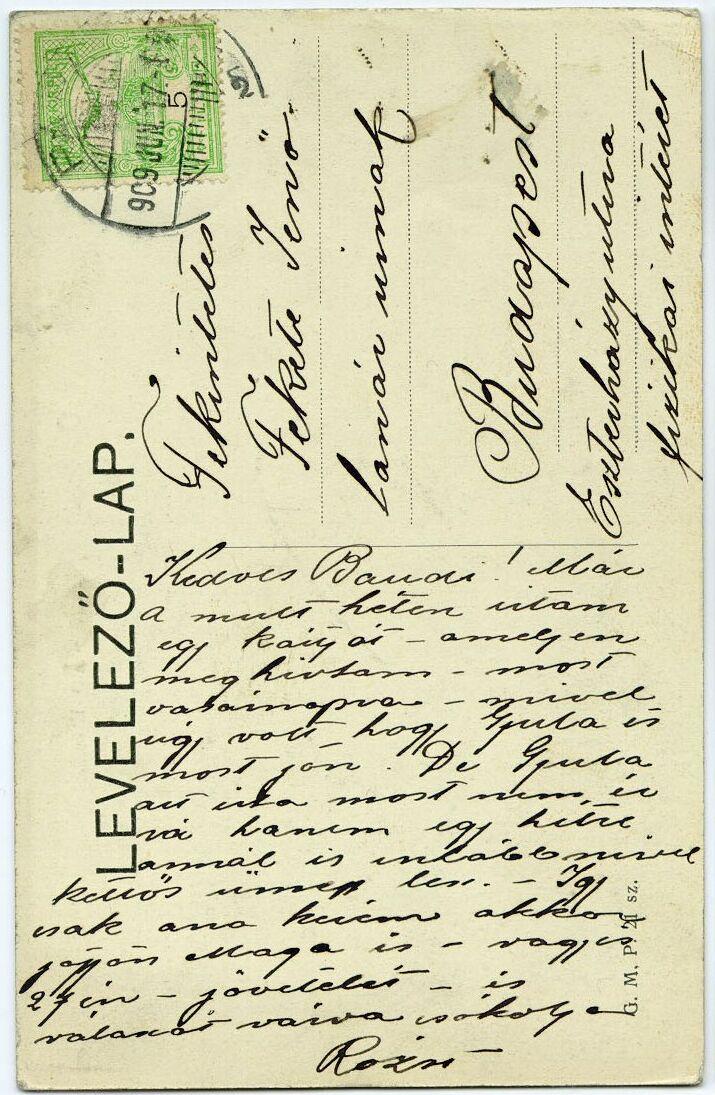 LEVELEZŐ-LAP.
5
909 JUN. 17
Tekintetes
Fekete Jenő
tanár urnak
Budapest
Eszterházy utca
fizikai intézet
Kedves Bandi! Már
a mult héten irtam
egy kártyát - amelyen
meghivtam - most
vasárnapra - mivel
úgy volt hogy Gyula is
most jön. De Gyula
azt irta most nem ér
rá hanem egy hétre
annál is inkább mivel
kettős ünnep lesz. - Igy
csak arra kérem akkor
jöjjön Maga is - vagyis
27én - jövetelét - is
válaszát várva csókolja
Rózsi
G. M. P. 21 sz.